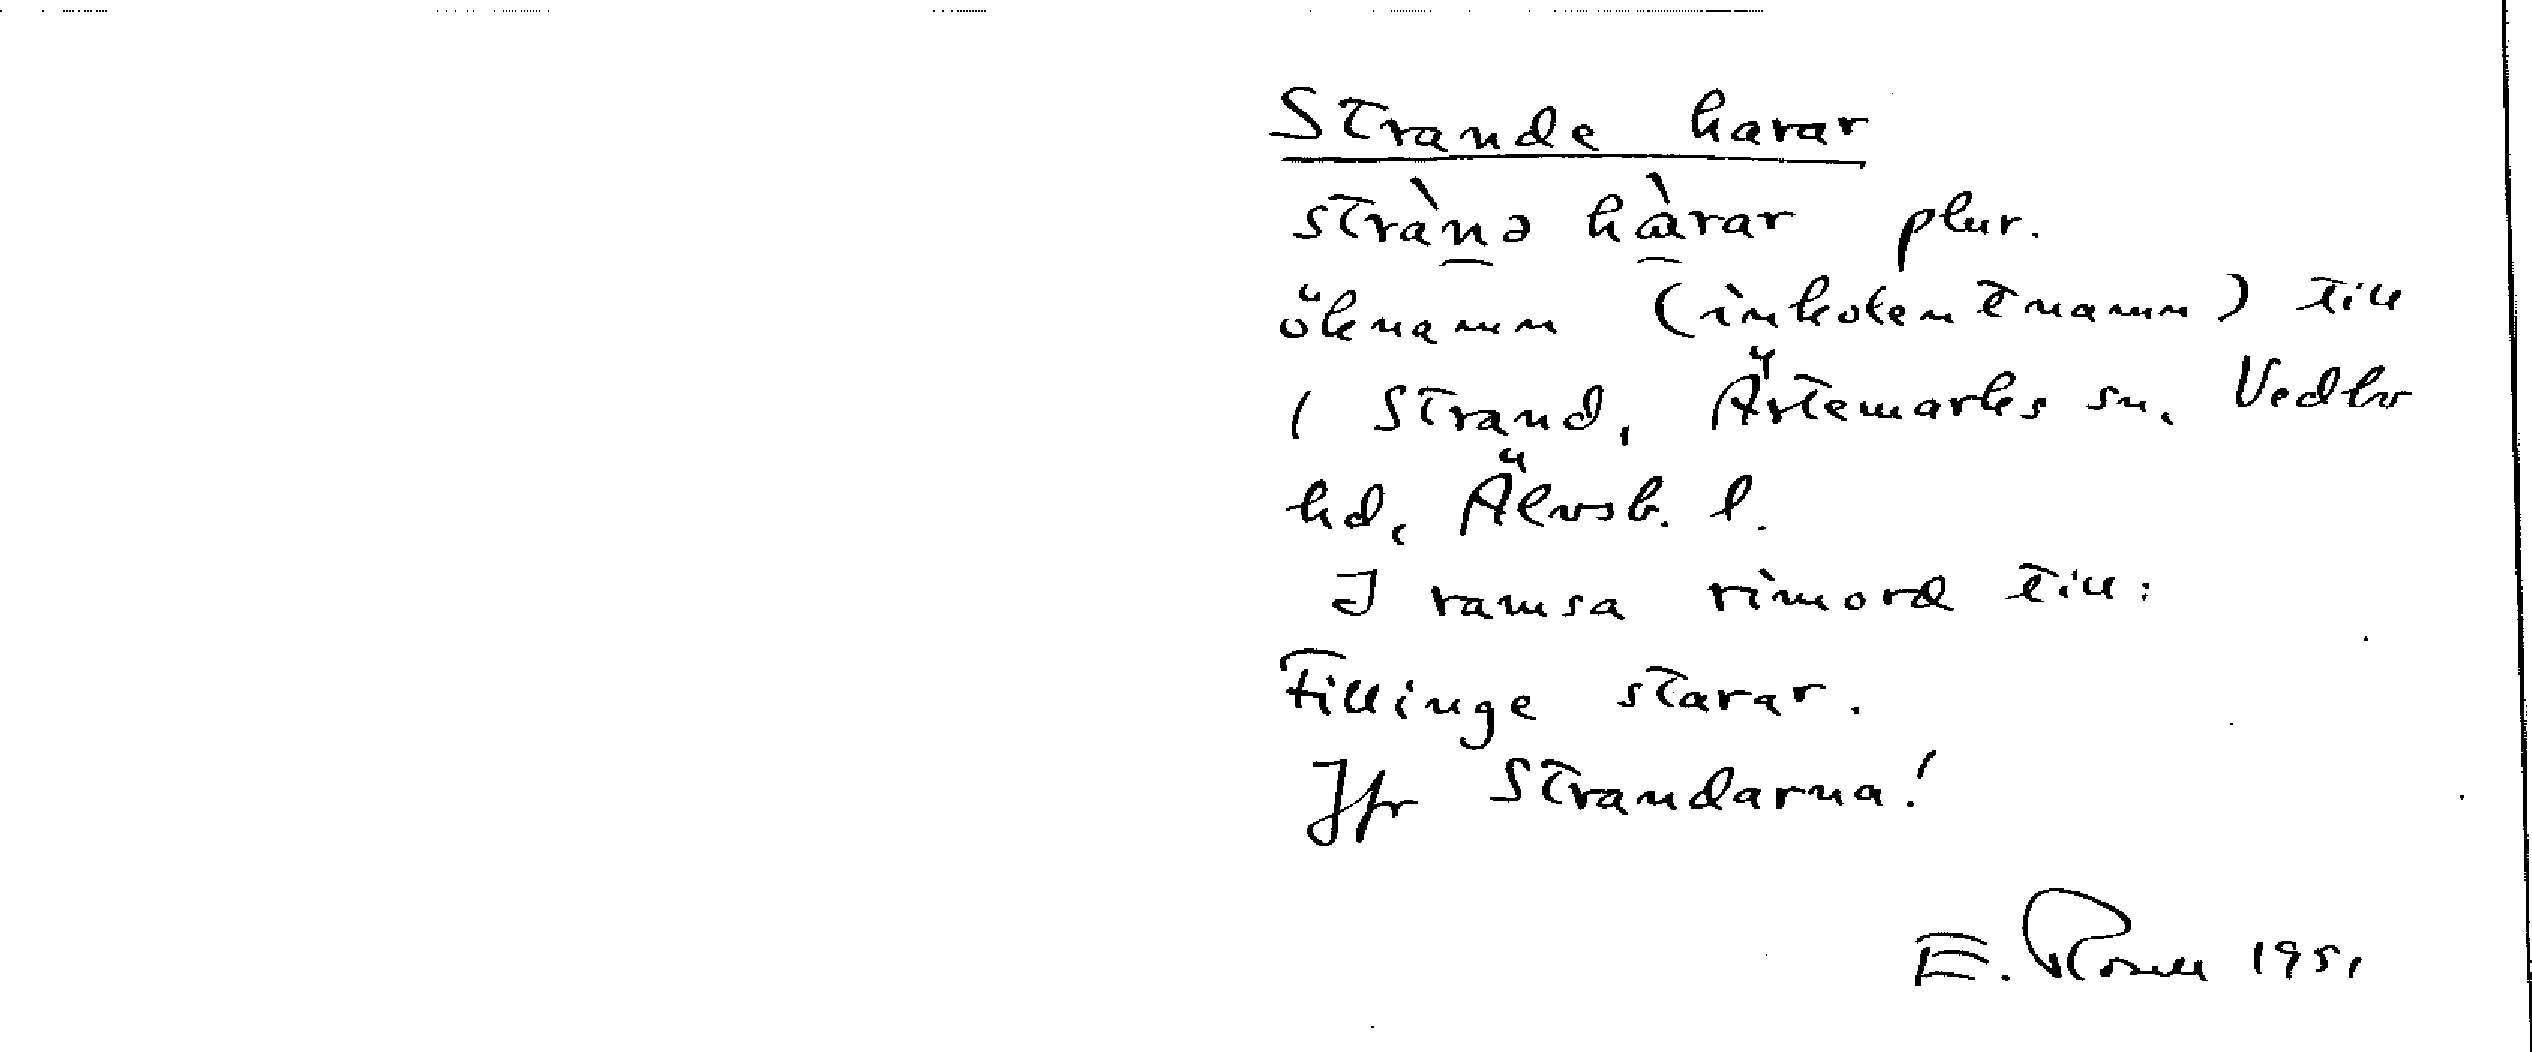 Strande harar
stràn̲ə hàrar plur.
öknamn (inkolentnamn) till
1 Strand, Ärtemarks sn, Vedbo
hd, Älvsb. l.
I ramsa rimord till:
Fillinge starar.
Jfr Strandarna!
E. Rosell 1951